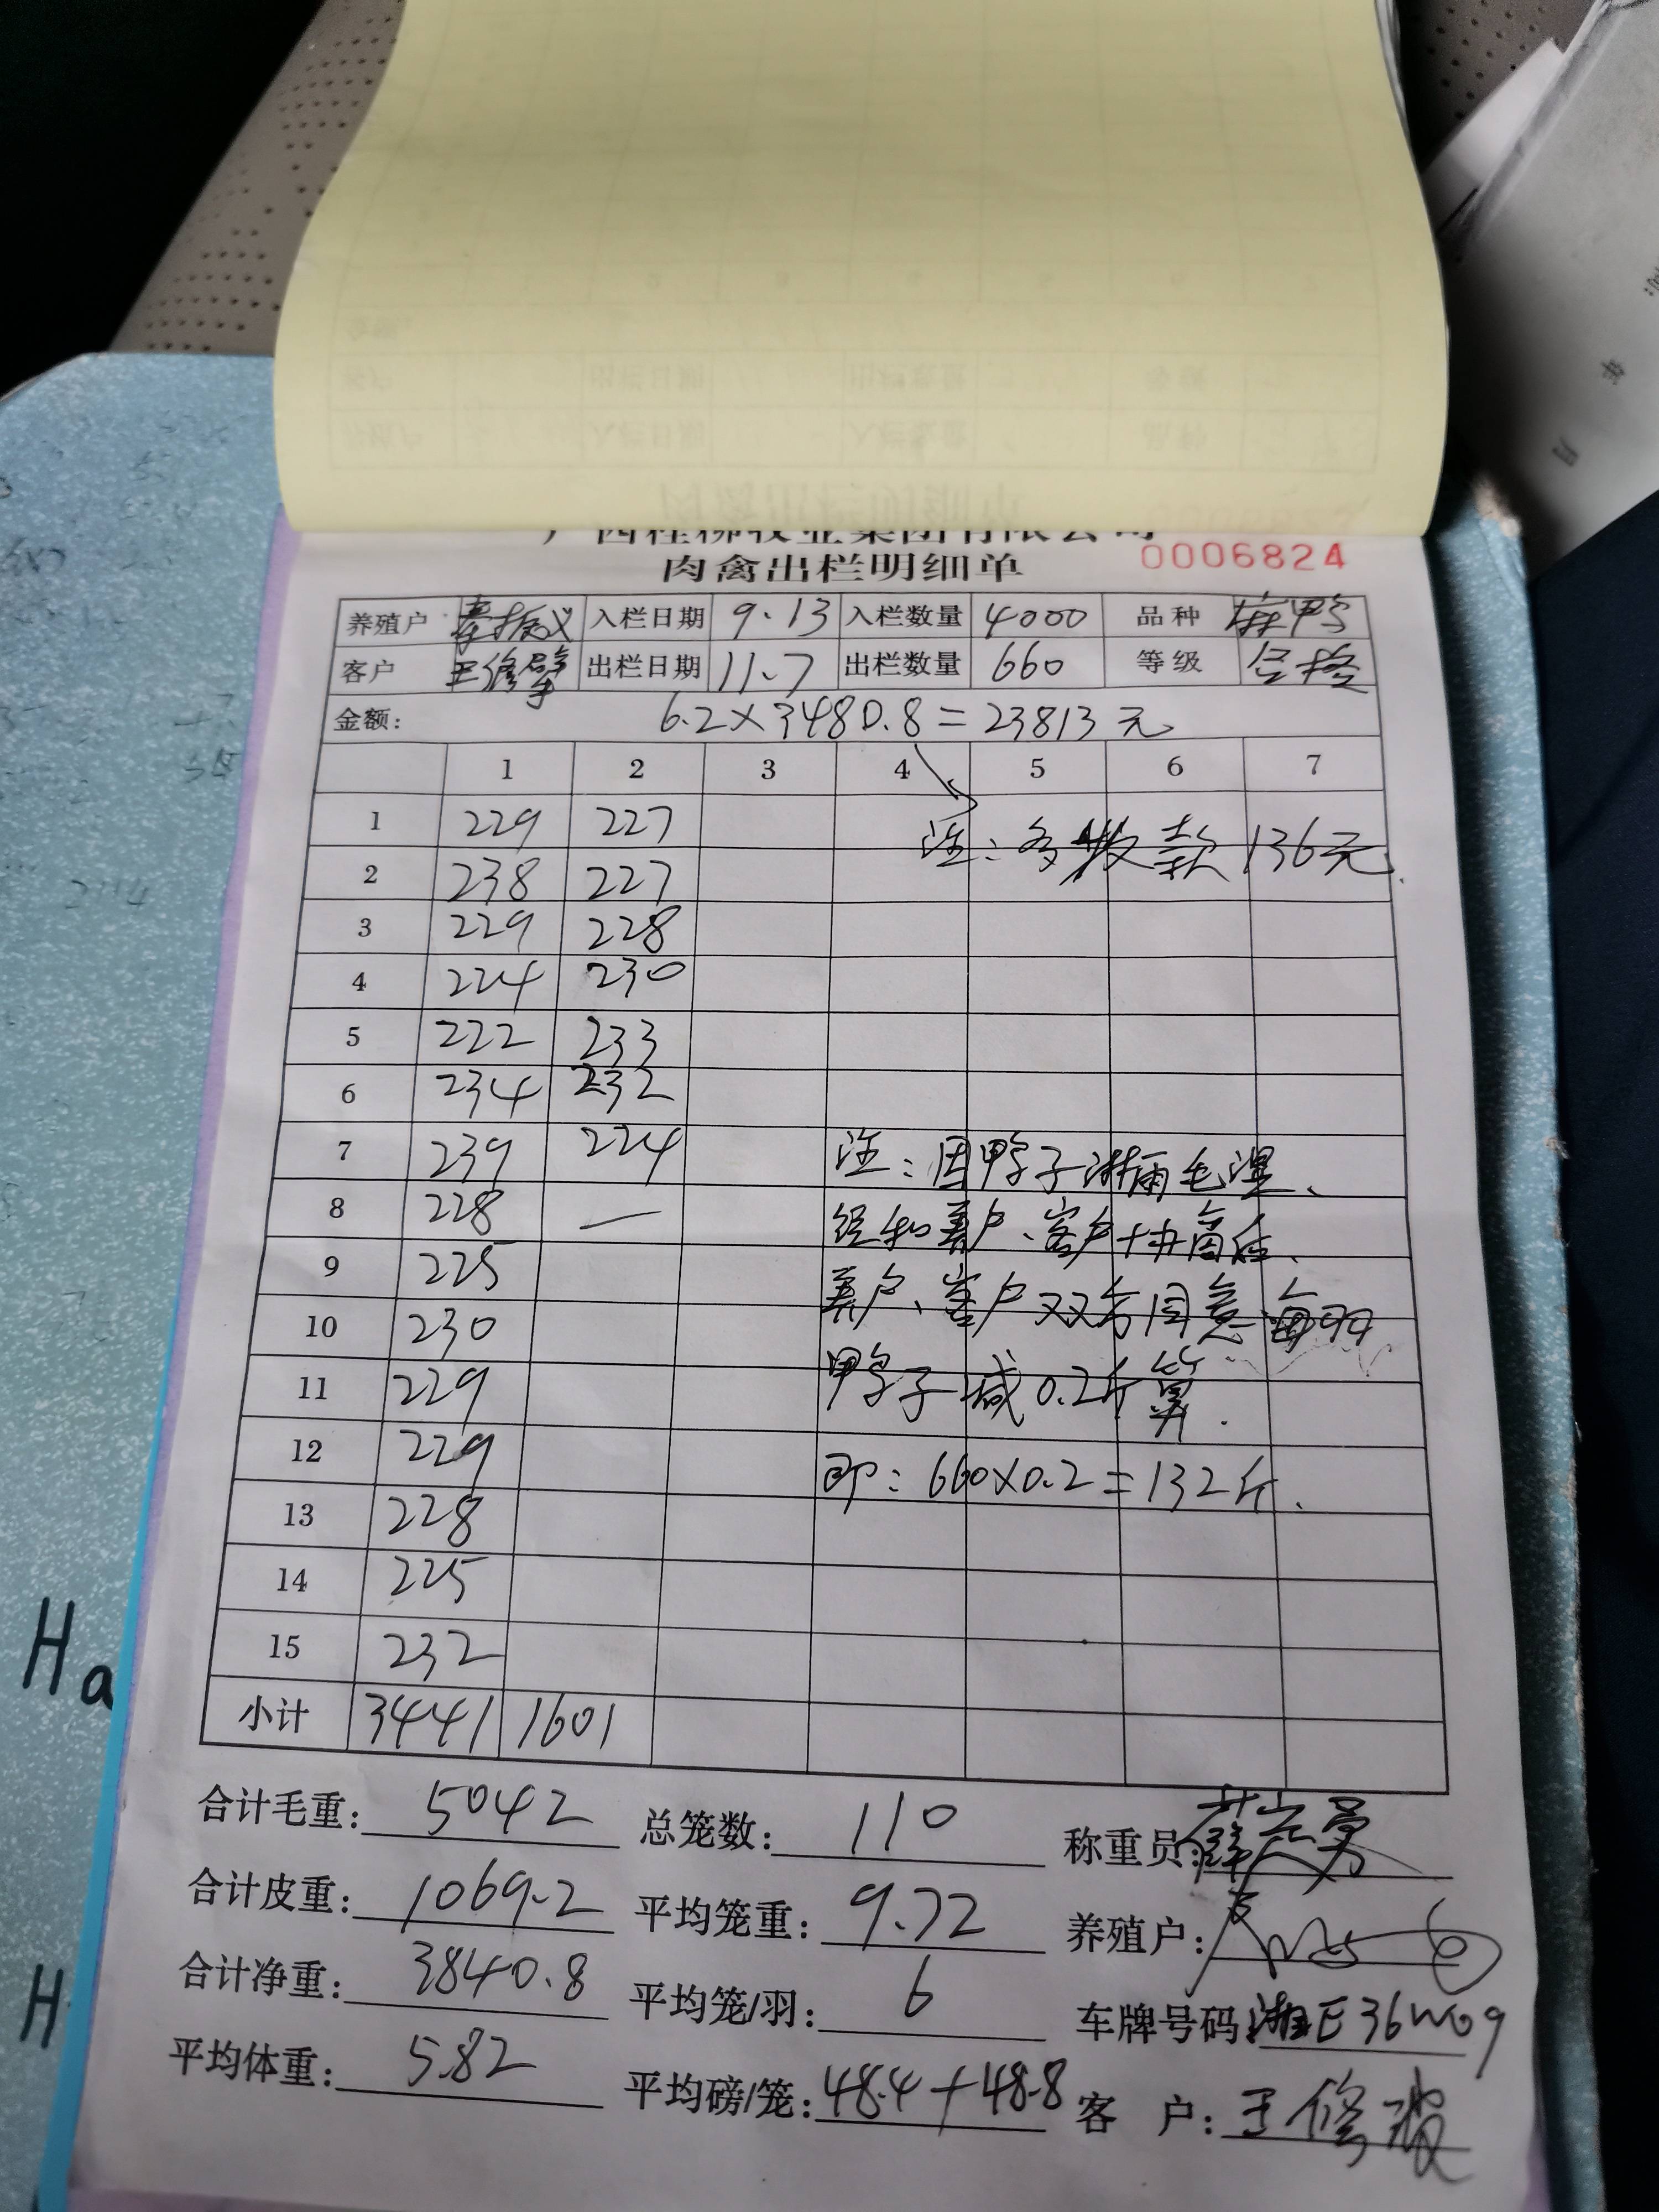 广西桂柳牧业集团有限公司
肉禽出栏明细单 0006824
养殖户 秦振义 入栏日期 9.13 入栏数量 4000 品种 麻鸭
客户 出栏日期 11.7 出栏数量 660 等级 合格
金额: 6.2×3480.8=23813元
1 2 3 4 5 6 7
1 229 227 注:多收款136元.
2 238 227
3 229 228
4 224 230
5 222 233
6 234 232
7 239 224 注:因鸭子淋雨毛湿、
8 228 — 经和养户、客户协商后、
9 225 养户、客户双方同意每羽
10 230
11 229 鸭子减0.2斤算.
12 229 即:660×0.2=132斤.
13 228
14 225
15 232
小计 3441 1601
合计毛重: 5042 总笼数: 110 称重员:
合计皮重: 1069.2 平均笼重: 9.72 养殖户:
合计净重: 3840.8 平均笼/羽: 6 车牌号码: 湘E36W09
平均体重: 5.82 平均磅/笼: 48.4+48.8 客 户:
Ha
H